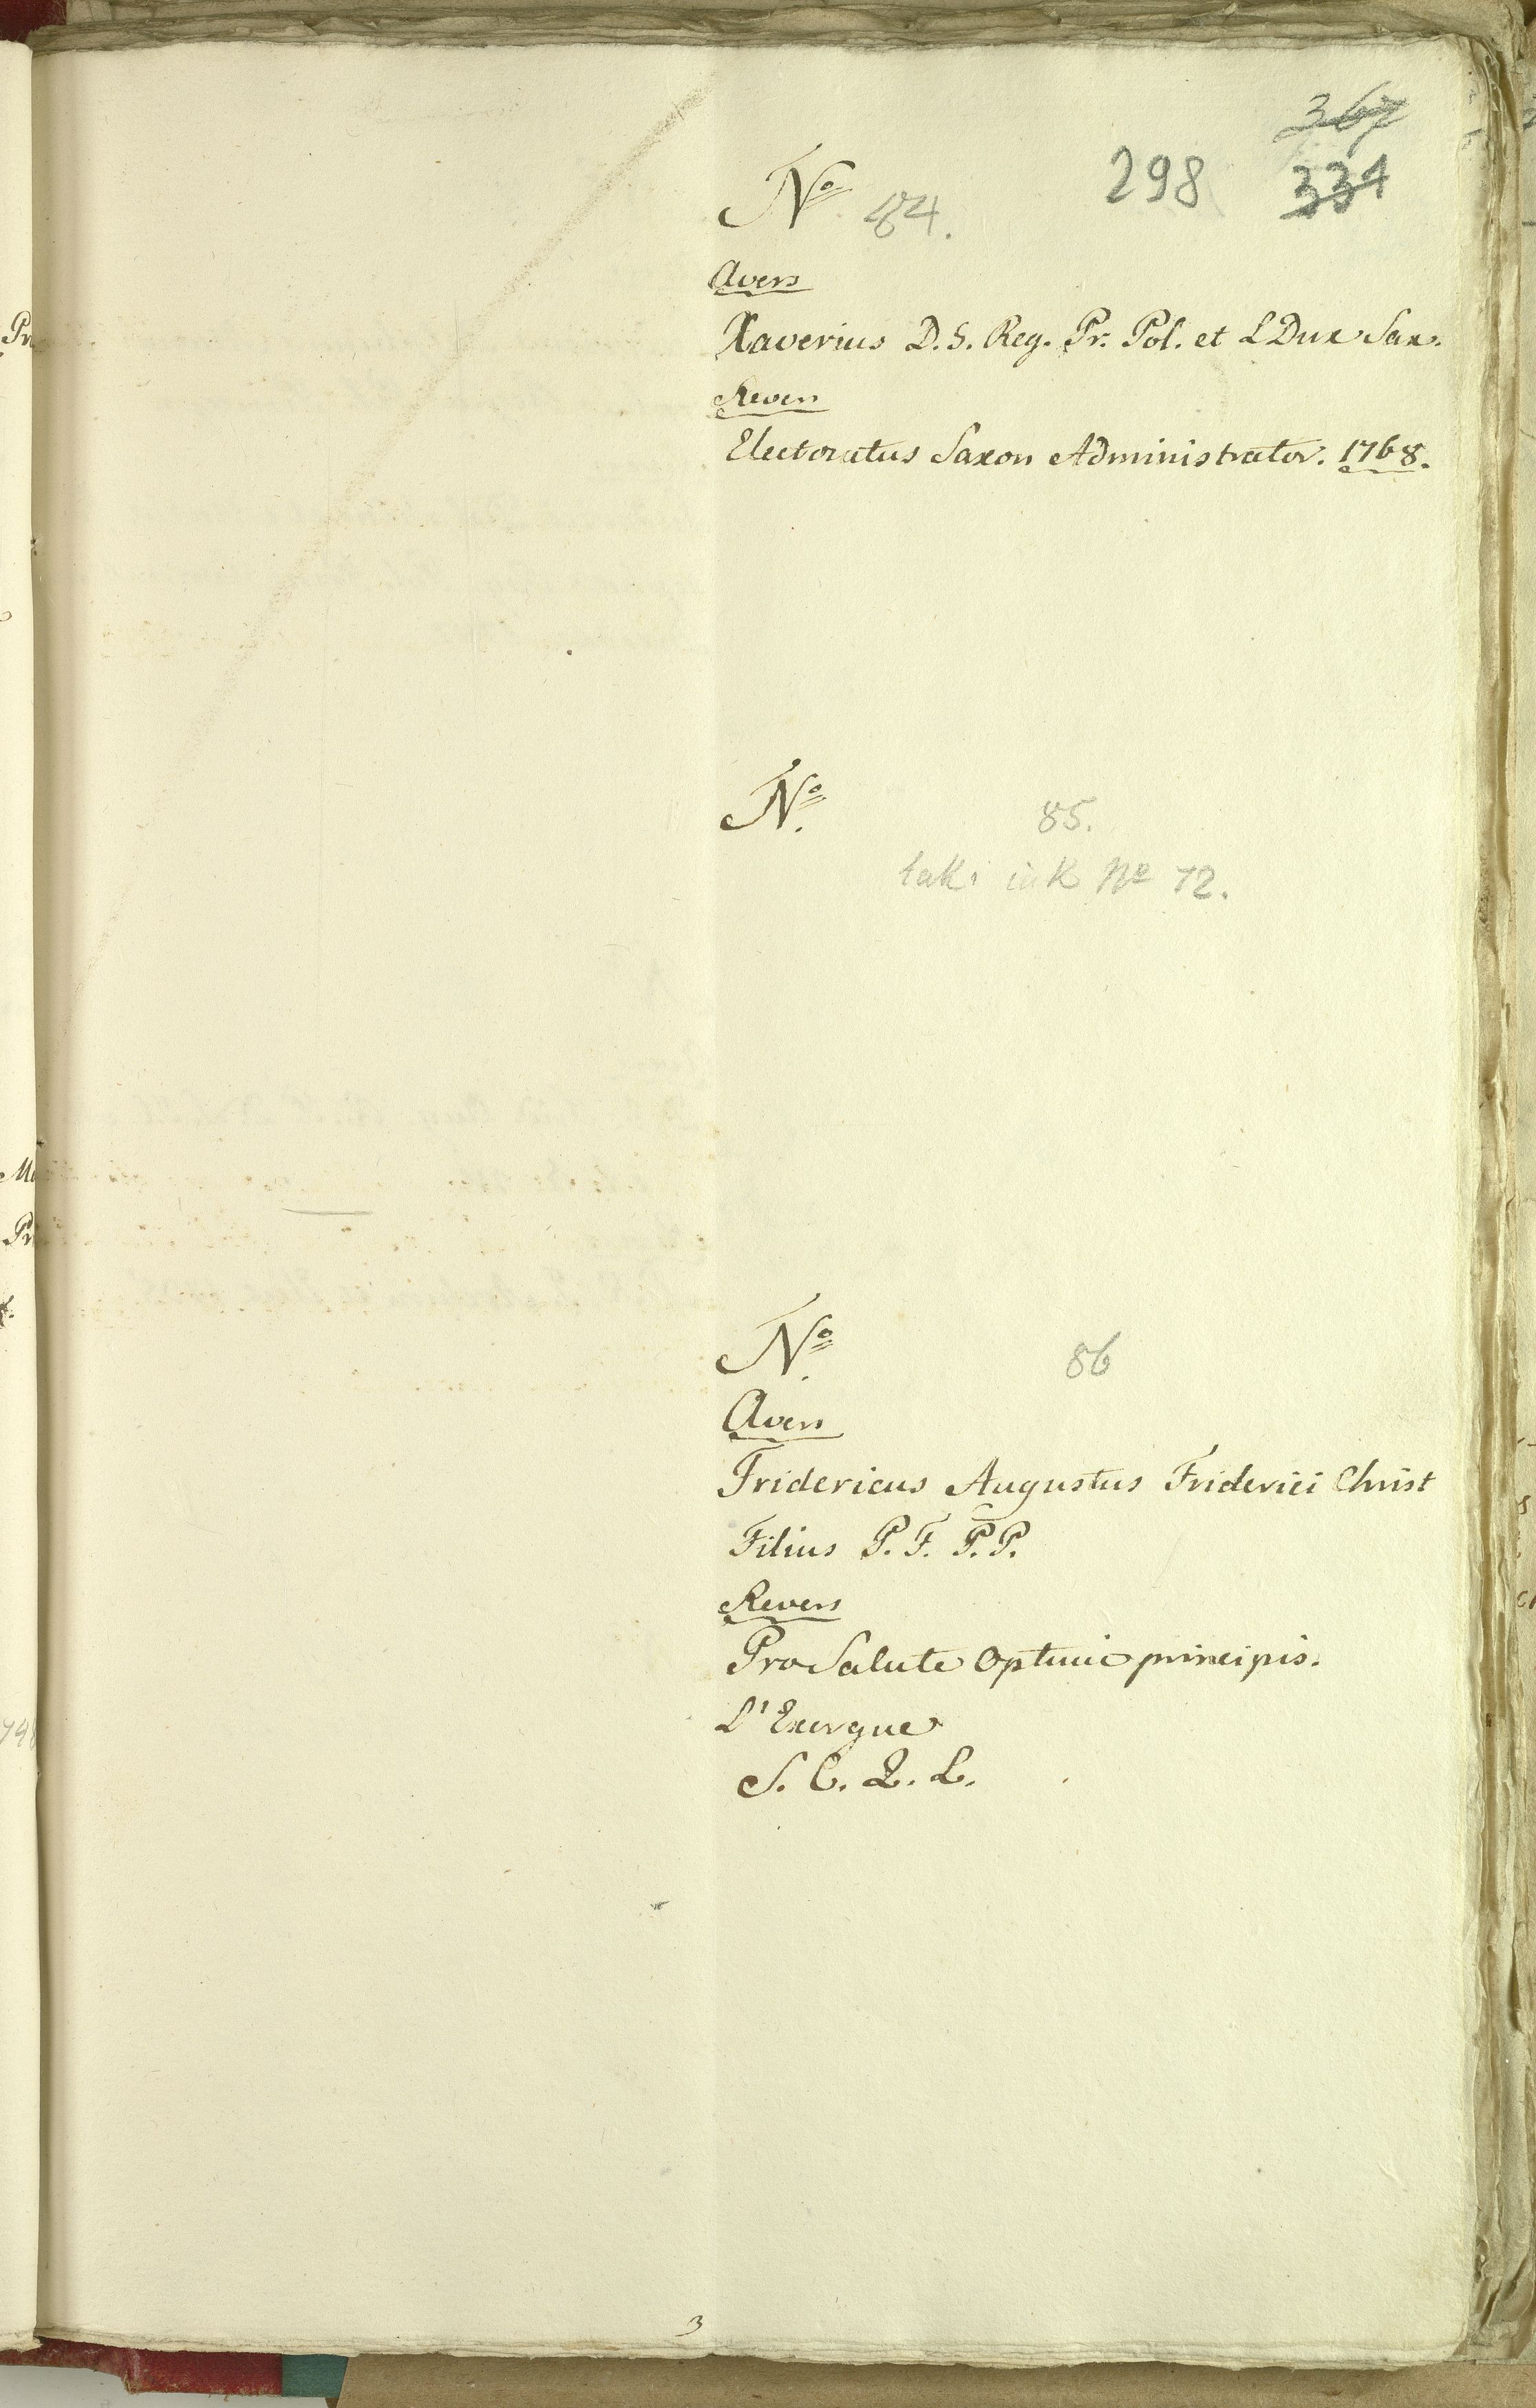 367
298 334
No 84.
Avers
Xaverius D. S. Reg. Pr. Pol. et L Dux Sax.
Revers
Electoratus Saxon Administrator. 1768.
No. 85.
taki jak No 72.
No. 86
Avers
Fridericus Augustus Friderici Christ
Filius P. F. P. P.
Revers
Pro Salute Optimi principis.
L'Exergue
S. C. Q. L.
3